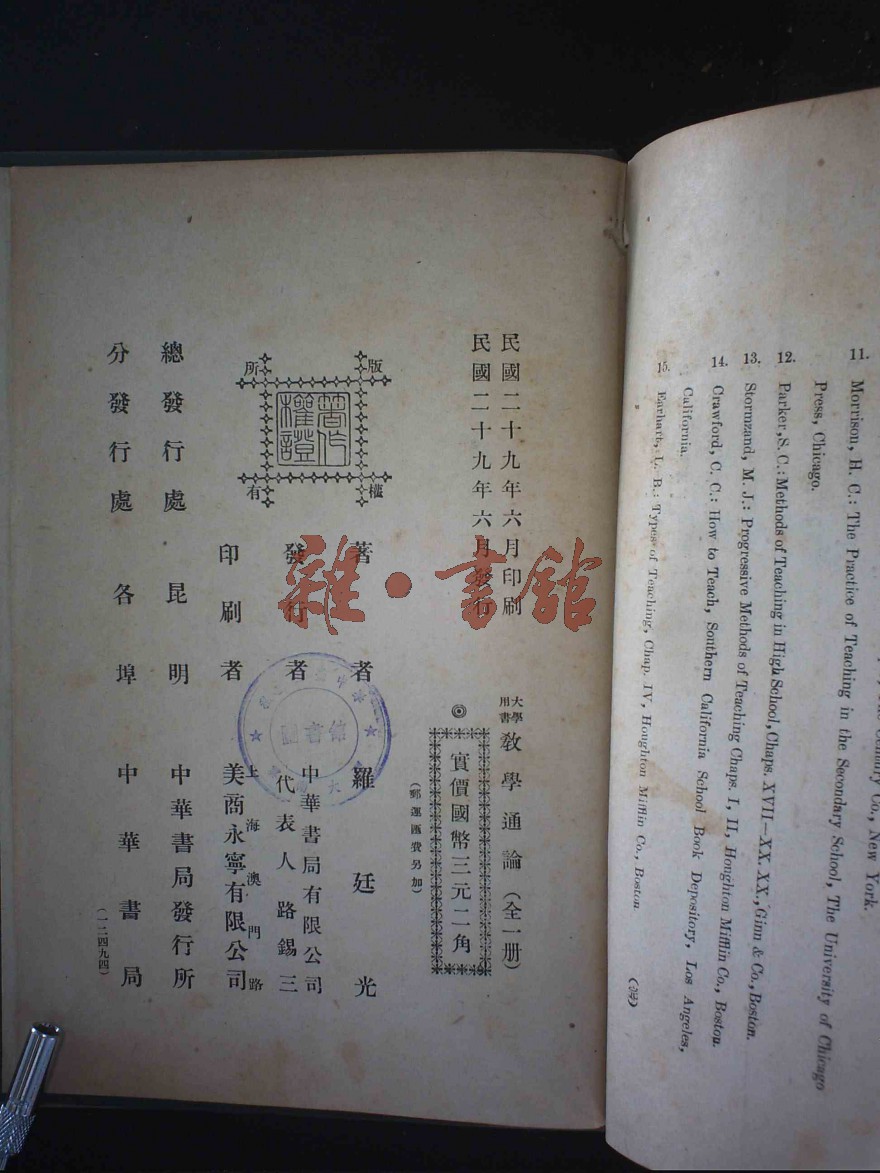 民國二十九年六月印刷
民國二十九年六月發行
大學用書
教學通論（全一册）
◎
實價國幣三元二角
（郵運匯費另加）
版權所有
著作權證
著者 羅廷光
發行者 中華書局有限公司
代表人 路錫三
印刷者 上海澳門路
美商永寧有限公司
總發行處 昆明 中華書局發行所
分發行處 各埠 中華書局
（一二四九四）
雜·書館
圖書館
Co., New York.
11. Morrison, H. C.: The Practice of Teaching in the Secondary School, The University of Chicago
Press, Chicago.
12. Parker, S. C.: Methods of Teaching in High School, Chaps. XVII—XX. XX., Ginn & Co., Boston.
13. Stormzand, M. J.: Progressive Methods of Teaching Chaps. I, II, Houghton Mifflin Co., Boston.
14. Crawford, C. C.: How to Teach, Southern California School Book Depository, Los Angeles,
California.
15. Earhart, L. B.: Types of Teaching, Chap. IV, Houghton Mifflin Co., Boston.